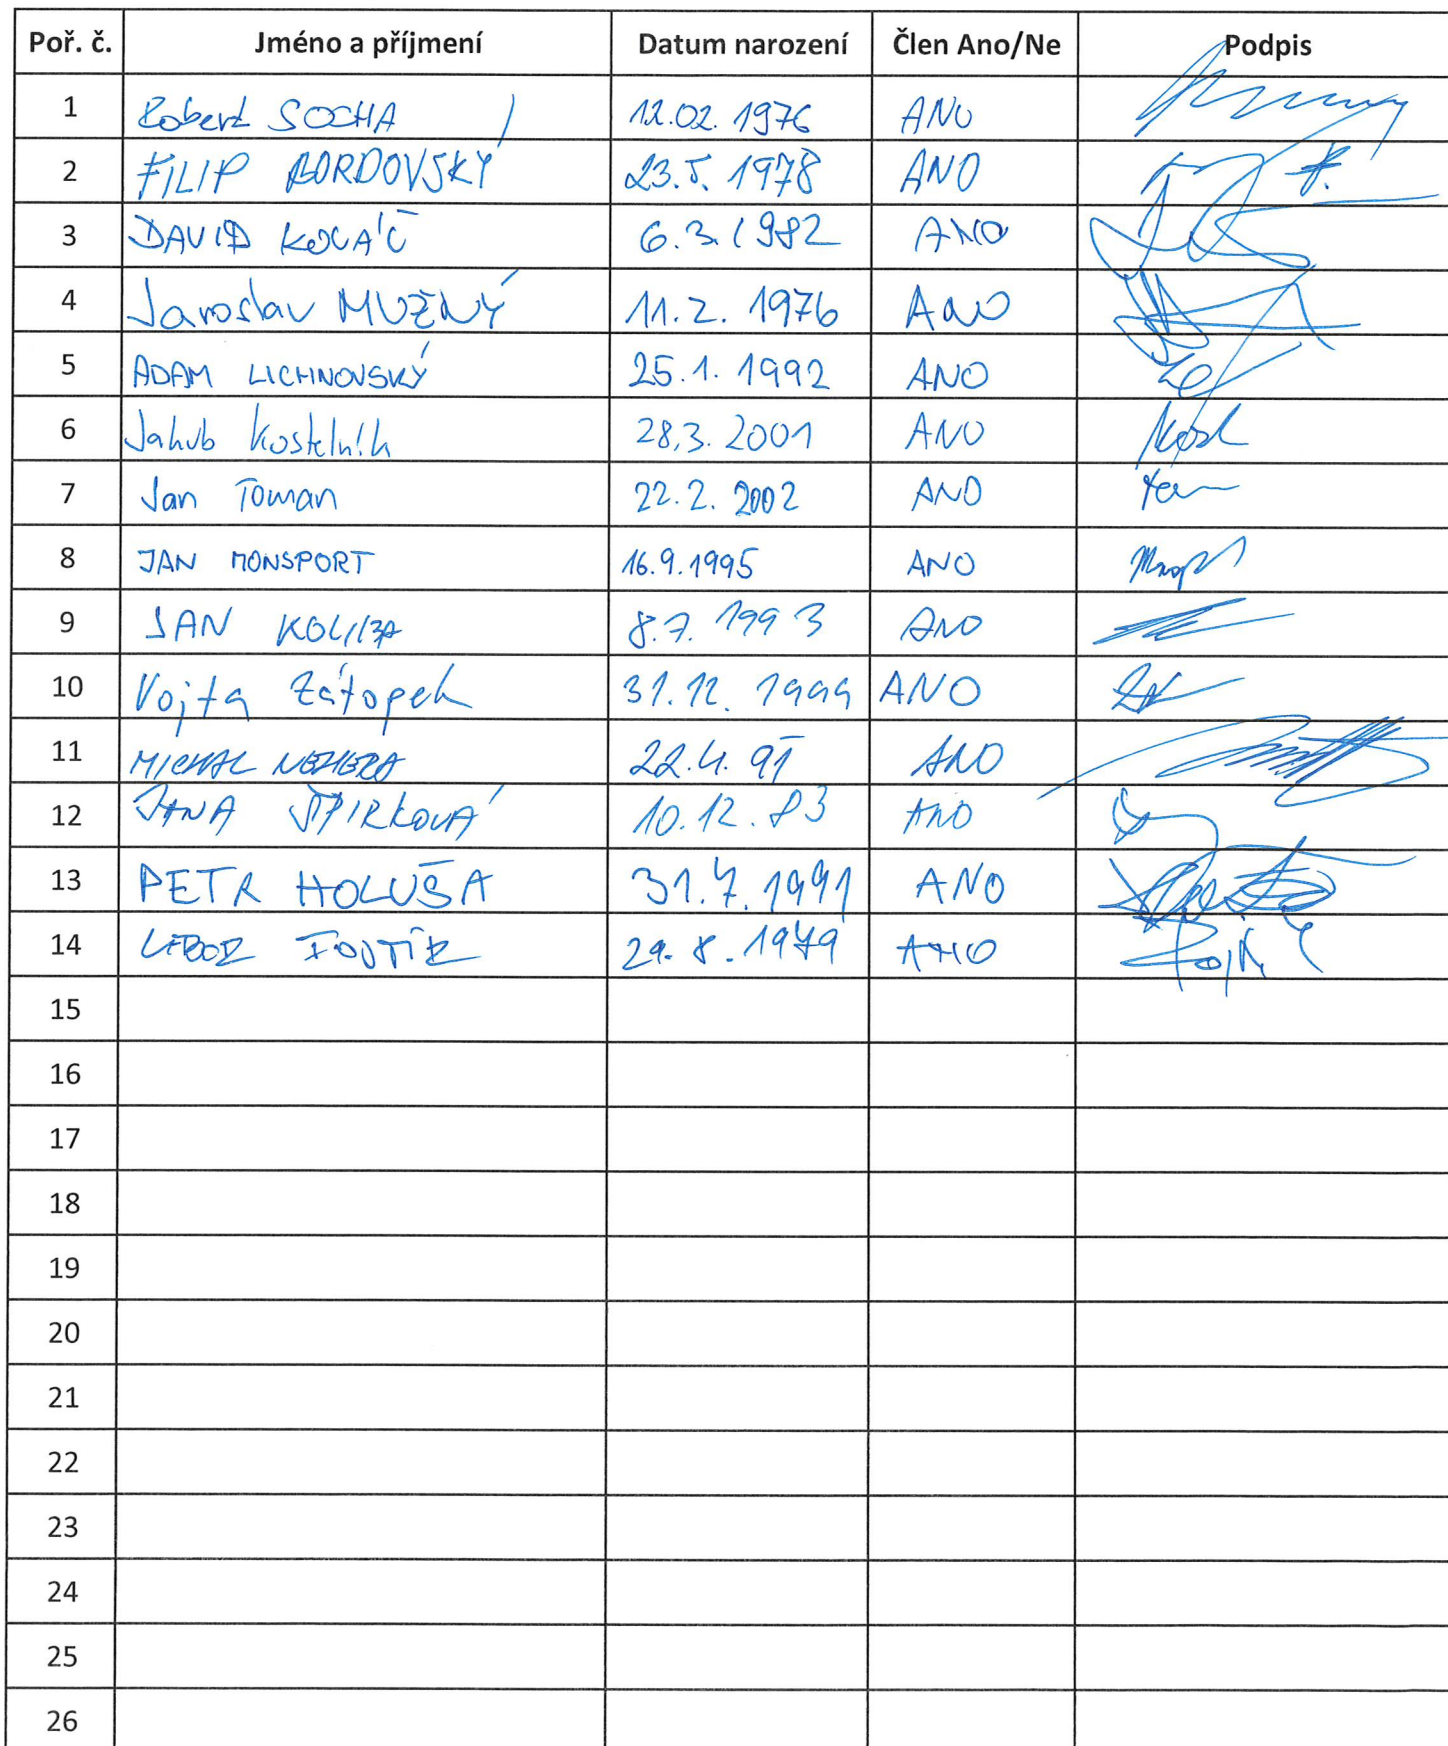 Poř. č. Jméno a příjmení Datum narození Člen Ano/Ne Podpis
1 Robert SOCHA 12.02. 1976 ANO
2 FILIP BORDOVSKÝ 23.5. 1978 ANO
3 DAVID KOVÁČ 6.3.1982 ANO
4 Jaroslav MUŽNÝ 11.2. 1976 ANO
5 ADAM LICHNOVSKÝ 25.1. 1992 ANO
6 Jakub Kostelník 28.3. 2001 ANO
7 Jan Toman 22.2. 2002 ANO
8 JAN MONSPORT 16.9.1995 ANO
9 JAN 8.7. 1993 ANO
10 Vojta Zátopek 31.12. 1999 ANO
11 MICHAL 22.4. 91 ANO
12 JANA ŠPIRKOVÁ 10.12. 83 ANO
13 PETR HOLUŠA 31.7.1991 ANO
14 LIBOR FOJTÍK 29.8.1979 ANO
15
16
17
18
19
20
21
22
23
24
25
26